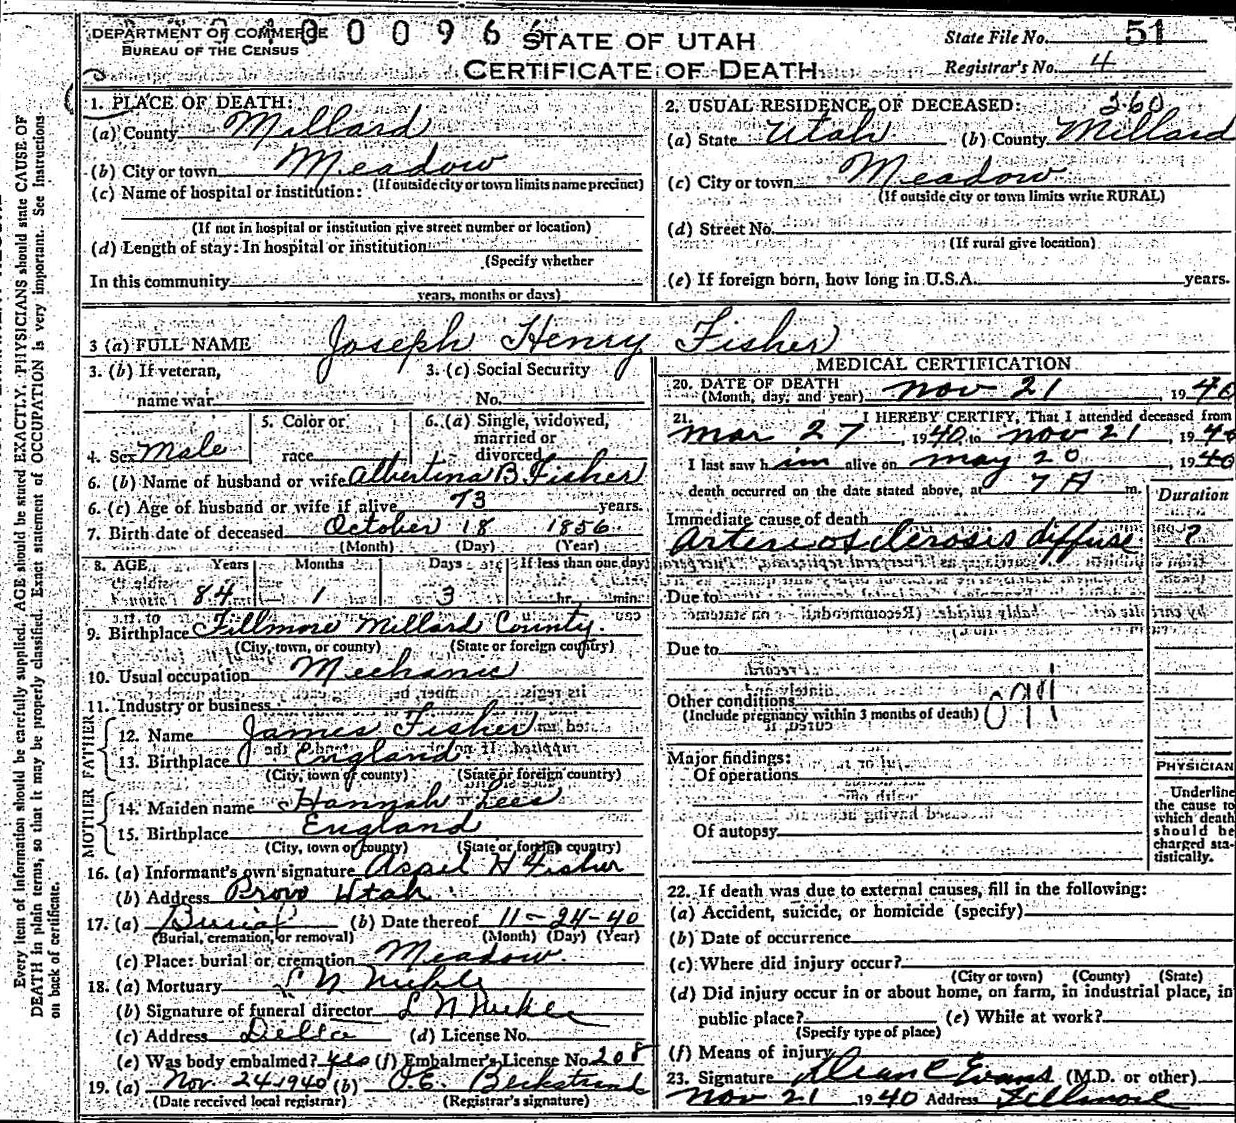 DEPARTMENT OF COMMERCE
BUREAU OF THE CENSUS
STATE OF UTAH
CERTIFICATE OF DEATH
State File No. 51
Registrar's No. 4
1. PLACE OF DEATH:
(a) County Millard
(b) City or town Meadow
(If outside city or town limits name precinct)
(c) Name of hospital or institution:
(If not in hospital or institution give street number or location)
(d) Length of stay: In hospital or institution
(Specify whether
In this community
years, months or days)
2. USUAL RESIDENCE OF DECEASED: 260
(a) State Utah (b) County Millard
(c) City or town Meadow
(If outside city or town limits write RURAL)
(d) Street No.
(If rural give location)
(e) If foreign born, how long in U.S.A. years.
3 (a) FULL NAME Joseph Henry Fisher
3. (b) If veteran,
name war
3. (c) Social Security
No.
4. Sex Male
5. Color or
race
6. (a) Single, widowed,
married or
divorced
6. (b) Name of husband or wife Albertina B. Fisher
6. (c) Age of husband or wife if alive 73 years.
7. Birth date of deceased October 18 1856
(Month) (Day) (Year)
8. AGE Years Months Days If less than one day
84 1 3 hr. min.
9. Birthplace Fillmore Millard County
(City, town, or county) (State or foreign country)
10. Usual occupation Mechanic
11. Industry or business
FATHER
12. Name James Fisher
13. Birthplace England
(City, town or county) (State or foreign country)
MOTHER
14. Maiden name Hannah Lees
15. Birthplace England
(City, town or county) (State or foreign country)
16. (a) Informant's own signature Assel H Fisher
(b) Address Provo Utah
17. (a) Burial (b) Date thereof 11-24-40
(Burial, cremation, or removal) (Month) (Day) (Year)
(c) Place: burial or cremation Meadow.
18. (a) Mortuary
(b) Signature of funeral director
(c) Address Delta (d) License No.
(e) Was body embalmed? yes (f) Embalmer's License No. 208
19. (a) Nov. 24 1940 (b) O.E. Beckstrand
(Date received local registrar) (Registrar's signature)
MEDICAL CERTIFICATION
20. DATE OF DEATH
(Month, day, and year) Nov 21, 1940
21. I HEREBY CERTIFY, That I attended deceased from
Mar 27, 1940 to Nov 21, 1940
I last saw him alive on May 20, 1940
death occurred on the date stated above, at 7 A m.
Duration
Immediate cause of death
Arteriosclerosis diffuse ?
Due to
Due to
Other conditions
(Include pregnancy within 3 months of death)
Major findings:
Of operations
Of autopsy
PHYSICIAN
Underline
the cause to
which death
should be
charged sta-
tistically.
22. If death was due to external causes, fill in the following:
(a) Accident, suicide, or homicide (specify)
(b) Date of occurrence
(c) Where did injury occur?
(City or town) (County) (State)
(d) Did injury occur in or about home, on farm, in industrial place, in
public place? (e) While at work?
(Specify type of place)
(f) Means of injury
23. Signature Evans (M.D. or other)
Nov 21 1940 Address Fillmore
Every item of information should be carefully supplied. AGE should be stated EXACTLY. PHYSICIANS should state CAUSE OF
DEATH in plain terms, so that it may be properly classified. Exact statement of OCCUPATION is very important. See Instructions
on back of certificate.